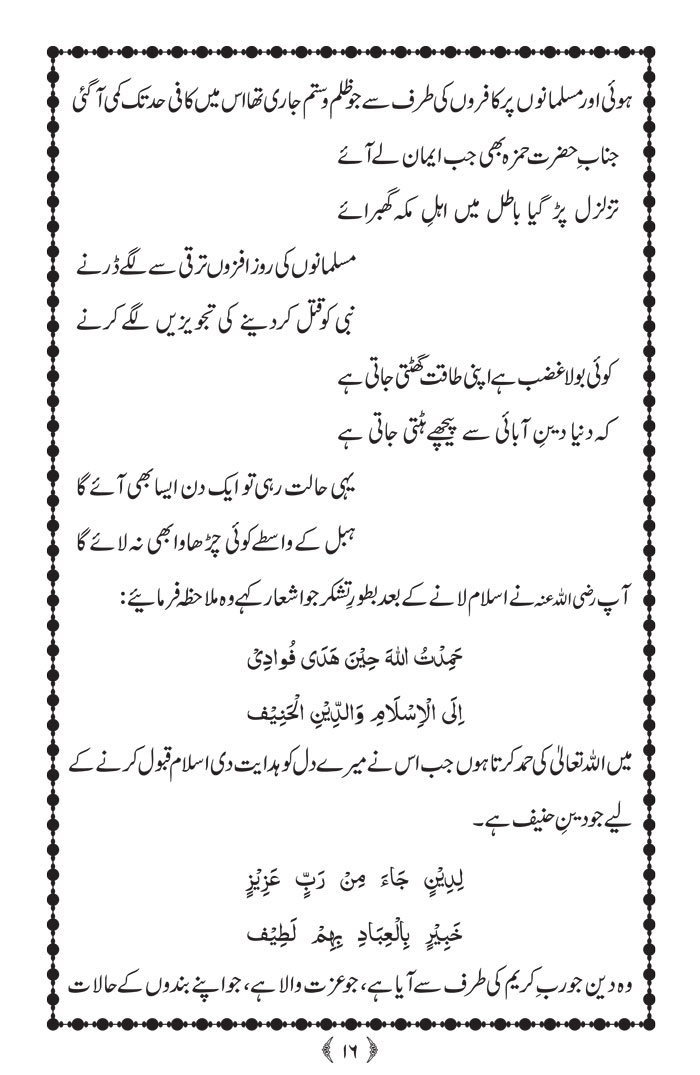 ہوئی اور مسلمانوں پر کافروں کی طرف سے جو ظلم وستم جاری تھا اس میں کافی حد تک کمی آ گئی
جنابِ حضرت حمزہ بھی جب ایمان لے آئے
تزلزل پڑ گیا باطل میں اہلِ مکہ گھبرائے
مسلمانوں کی روز افزوں ترقی سے لگے ڈرنے
نبی کو قتل کر دینے کی تجویزیں لگے کرنے
کوئی بولا غضب ہے اپنی طاقت گھٹتی جاتی ہے
کہ دنیا دینِ آبائی سے پیچھے ہٹتی جاتی ہے
یہی حالت رہی تو ایک دن ایسا بھی آئے گا
ہبل کے واسطے کوئی چڑھاوا بھی نہ لائے گا
آپ رضی اللہ عنہ نے اسلام لانے کے بعد بطورِ تشکر جو اشعار کہے وہ ملاحظہ فرمائیے:
حَمِدْتُ اللهَ حِيْنَ هَدَى فُوادِيْ
اِلَى الْاِسْلَامِ وَالدِّيْنِ الْحَنِيْف
میں اللہ تعالیٰ کی حمد کرتا ہوں جب اس نے میرے دل کو ہدایت دی اسلام قبول کرنے کے
لیے جو دینِ حنیف ہے۔
لِدِيْنٍ جَاءَ مِنْ رَبٍّ عَزِيْزٍ
خَبِيْرٍ بِالْعِبَادِ بِهِمْ لَطِيْف
وہ دین جو ربِ کریم کی طرف سے آیا ہے، جو عزت والا ہے، جو اپنے بندوں کے حالات
﴿١٦﴾